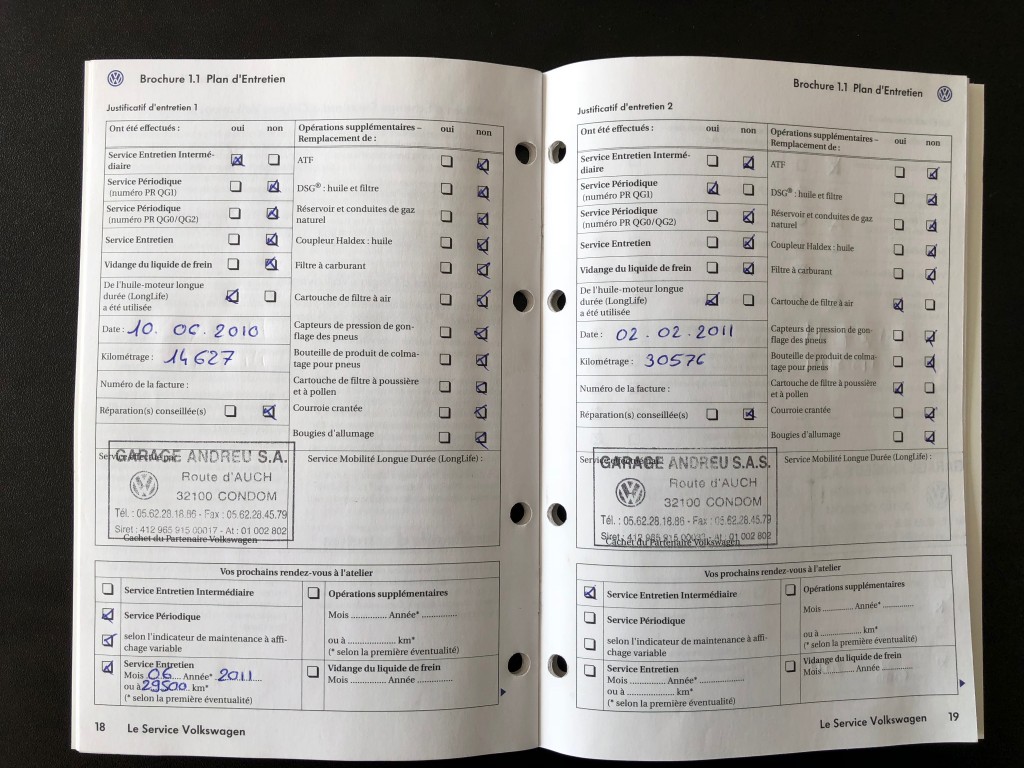 Brochure 1.1 Plan d'Entretien
Justificatif d'entretien 1
Ont été effectués : oui non
Service Entretien Intermé-
diaire
Service Périodique
(numéro PR QG1)
Service Périodique
(numéro PR QG0/QG2)
Service Entretien
Vidange du liquide de frein
De l'huile-moteur longue
durée (LongLife)
a été utilisée
Date : 10. 06. 2010
Kilométrage : 14627
Numéro de la facture :
Réparation(s) conseillée(s)
Opérations supplémentaires – oui non
Remplacement de :
ATF
DSG® : huile et filtre
Réservoir et conduites de gaz
naturel
Coupleur Haldex : huile
Filtre à carburant
Cartouche de filtre à air
Capteurs de pression de gon-
flage des pneus
Bouteille de produit de colma-
tage pour pneus
Cartouche de filtre à poussière
et à pollen
Courroie crantée
Bougies d'allumage
GARAGE ANDREU S.A.
Route d'AUCH
32100 CONDOM
Tél. : 05.62.28.18.86 - Fax : 05.62.28.45.79
Siret : 412 965 915 00017 - At : 01 002 802
Cachet du Partenaire Volkswagen
Service Mobilité Longue Durée (LongLife) :
Vos prochains rendez-vous à l'atelier
Service Entretien Intermédiaire
Service Périodique
selon l'indicateur de maintenance à affi-
chage variable
Service Entretien
Mois 06.... Année* 2011....
ou à 29500. km*
(* selon la première éventualité)
Opérations supplémentaires
Mois .............. Année* ..............
ou à ..................... km*
(* selon la première éventualité)
Vidange du liquide de frein
Mois .............. Année ..............
18 Le Service Volkswagen
Brochure 1.1 Plan d'Entretien
Justificatif d'entretien 2
Ont été effectués : oui non
Service Entretien Intermé-
diaire
Service Périodique
(numéro PR QG1)
Service Périodique
(numéro PR QG0/QG2)
Service Entretien
Vidange du liquide de frein
De l'huile-moteur longue
durée (LongLife)
a été utilisée
Date : 02. 02. 2011
Kilométrage : 30576
Numéro de la facture :
Réparation(s) conseillée(s)
Opérations supplémentaires – oui non
Remplacement de :
ATF
DSG® : huile et filtre
Réservoir et conduites de gaz
naturel
Coupleur Haldex : huile
Filtre à carburant
Cartouche de filtre à air
Capteurs de pression de gon-
flage des pneus
Bouteille de produit de colma-
tage pour pneus
Cartouche de filtre à poussière
et à pollen
Courroie crantée
Bougies d'allumage
GARAGE ANDREU S.A.S.
Route d'AUCH
32100 CONDOM
Tél. : 05.62.28.18.86 - Fax : 05.62.28.45.79
Siret : 412 965 915 - At : 01 002 802
Cachet du Partenaire Volkswagen
Service Mobilité Longue Durée (LongLife) :
Vos prochains rendez-vous à l'atelier
Service Entretien Intermédiaire
Service Périodique
selon l'indicateur de maintenance à affi-
chage variable
Service Entretien
Mois .............. Année* ..............
ou à ..................... km*
(* selon la première éventualité)
Opérations supplémentaires
Mois .............. Année* ..............
ou à ..................... km*
(* selon la première éventualité)
Vidange du liquide de frein
Mois .............. Année ..............
Le Service Volkswagen 19